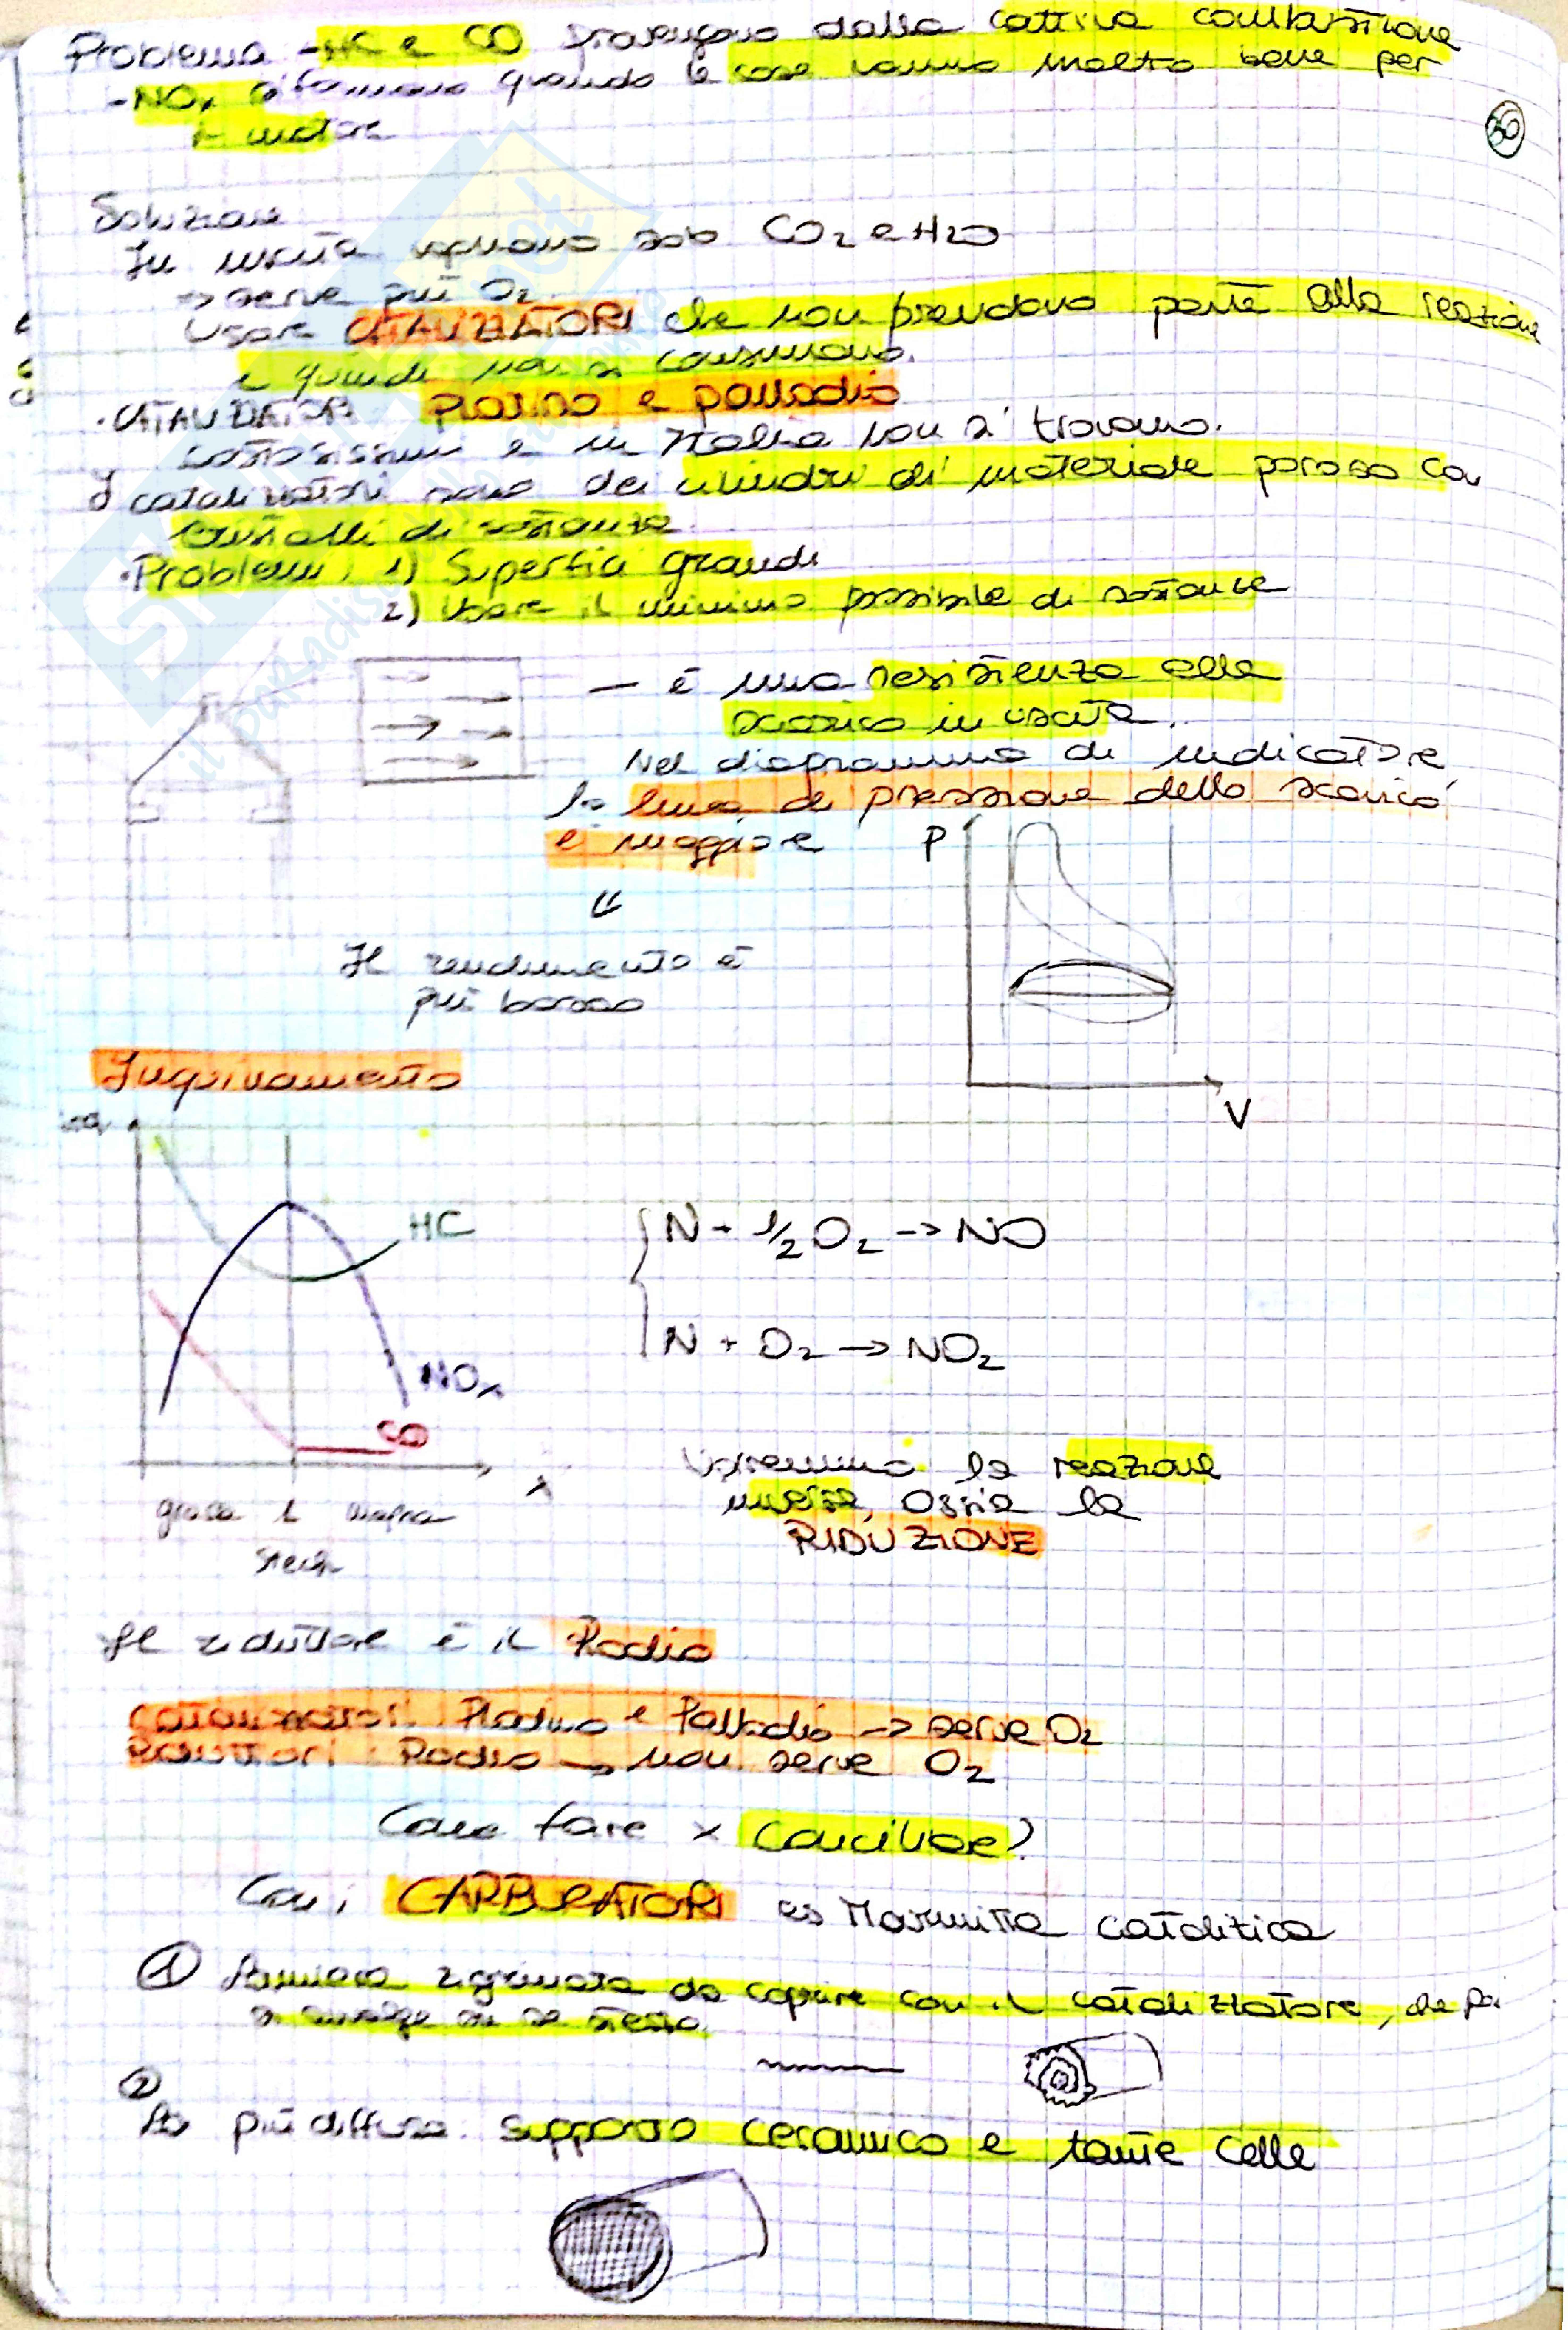 Problema - HC e CO provengono dalla cattiva combustione
- NOx si formano quando le cose vanno molto bene per
il motore
30
Soluzione
In uscita vogliamo solo CO2 e H2O
→ serve più O2
Usare CATALIZZATORI che non prendono parte alla reazione
e quindi non si consumano.
• CATALIZZATORI Platino e palladio
costosissimi e in Italia non si trovano.
I catalizzatori sono dei cilindri di materiale poroso con
cristalli di sostanza
• Problemi: 1) Superfici grandi
2) Usare il minimo possibile di sostanze
- è una resistenza allo
scarico in uscita.
Nel diagramma di indicatore
la linea di pressione dello scarico
è maggiore
P
⇓
Il rendimento è
più basso
V
Inquinamento
HC
N + 1/2 O2 → NO
N + O2 → NO2
NOx
CO
λ
Vorremmo la reazione
inversa, ossia la
RIDUZIONE
grassa 1 magra
stech
Il riduttore è il Rodio
Catalizzatori: Platino e Palladio → serve O2
Riduttori: Rodio → non serve O2
Come fare x conciliare?
Con i CARBURATORI es Marmitta catalitica
1 Lamiera zigrinata da coprire con il catalizzatore, che poi
si avvolge su se stessa.
2
La più diffusa: supporto ceramico e tante celle
SKUOLA.net
il paradiso dello studente